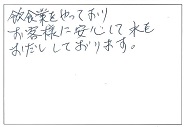 飲食業をやっており
お客様に安心して水を
おだししております。